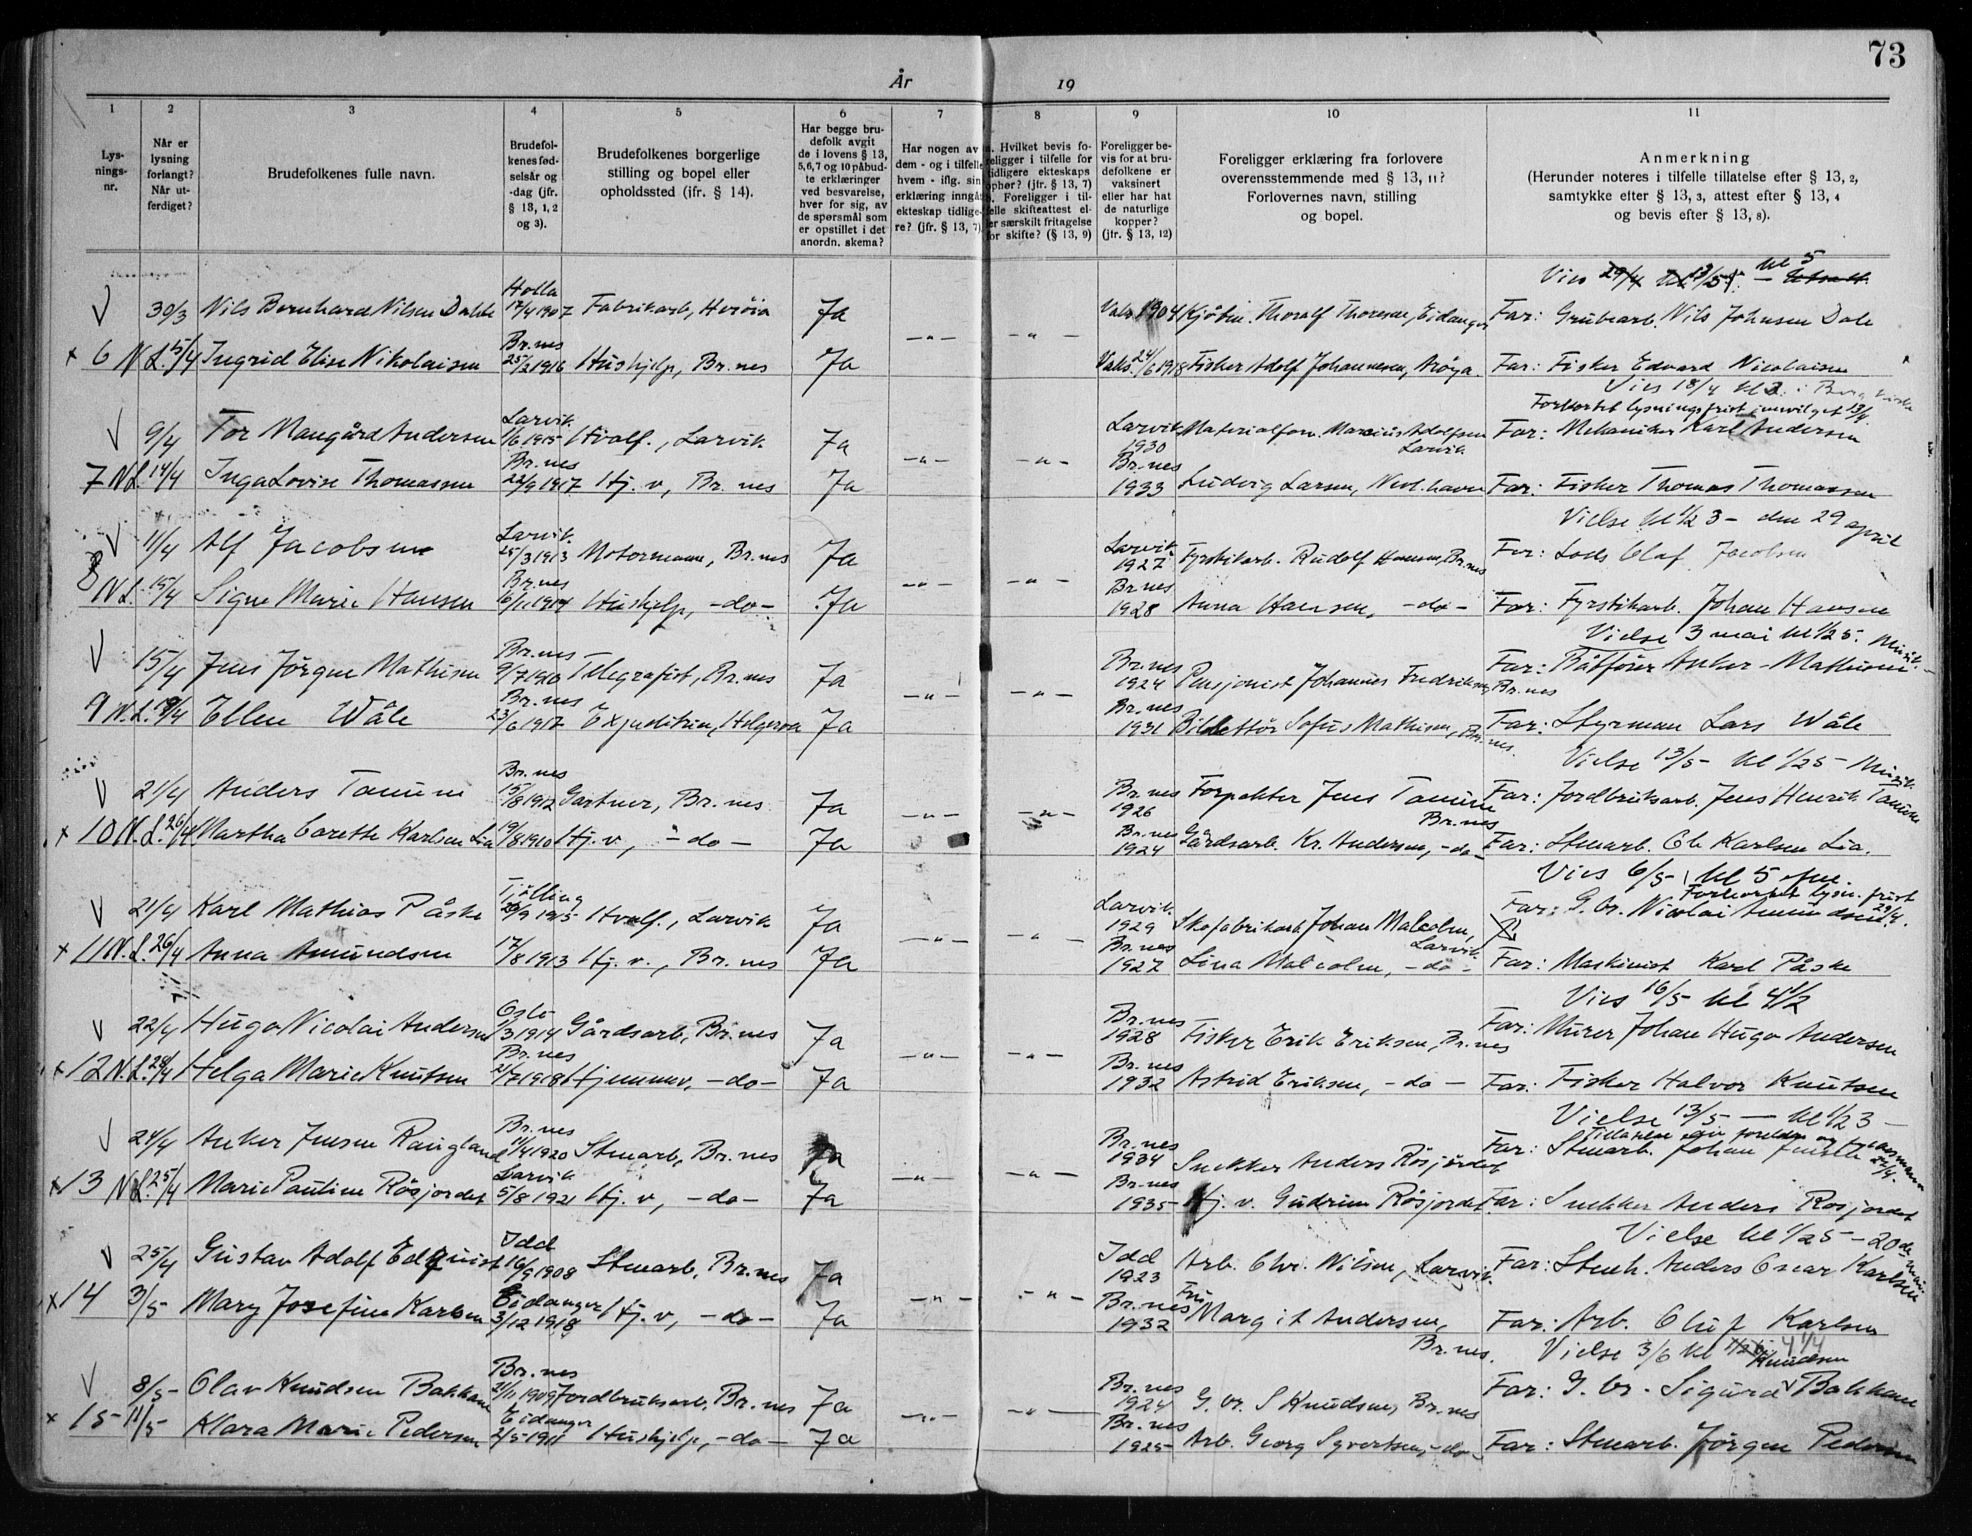 73
År 19
1 2 3 4 5 6 7 8 9 10 11
Lys-
nings-
nr.
Når er
lysning
forlangt?
Når ut-
ferdiget?
Brudefolkenes fulle navn.
Brudefol-
kenes fød-
selsår og
-dag (jfr.
§ 13, 1, 2
og 3).
Brudefolkenes borgerlige
stilling og bopel eller
opholdssted (ifr. § 14).
Har begge bru-
defolk avgit
de i lovens § 13,
5,6,7 og 10 påbud-
te erklæringer
ved besvarelse,
hver for sig, av
de spørsmål som
er opstillet i det
anordn. skema?
Har nogen av
dem - og i tilfelle
hvem - iflg. sin
erklæring inngått
ekteskap tidlige-
re? (jfr. § 13, 7)
Hvilket bevis fo-
religger i tilfelle for
tidligere ekteskaps
ophør? (jfr. § 13, 7)
Foreligger i til-
felle skifteattest el-
ler særskilt fritagelse
for skifte? (§ 13, 9)
Foreligger be-
vis for at bru-
defolkene er
vaksinert
eller har hat
de naturlige
kopper?
(jfr. § 13, 12)
Foreligger erklæring fra forlovere
overensstemmende med § 13, 11?
Forlovernes navn, stilling
og bopel.
Anmerkning
(Herunder noteres i tilfelle tillatelse efter § 13, 2,
samtykke efter § 13, 3, attest efter § 13, 4
og bevis efter § 13, 8).
Vies 29/4 13/5 kl 5
Holla
V 30/3 Nils Bernhard Nilsen Dahle 17/4 1907 Fabrikarb, Herøia Ja Vaks 1904 Kjøbm. Thoralf Thoresen, Eidanger Far: Grubearb. Nils Johnsen Dale
Br.nes
x 6 N.L. 5/4 Ingrid Elise Nikolaisen 25/2 1916 Hushjelp, Br.nes Ja -"- -"- Vaks. 24/6 1918 Fisker Adolf Johannesen, Arøya. Far: Fisker Edvard Nicolaisen
Vies 18/4 kl
Forkortet lysningsfrist innvilget 13/4
Larvik
V 9/4 Tor Maugård Andersen 1/6 1915 Hvalf., Larvik Ja Larvik 1930 Materialforv. Marcius Adolfsen Larvik Far: Mekaniker Karl Andersen
Br.nes
7 N.L. 14/4 Inga Lovise Thomassen 22/9 1917 Hj. v, Br.nes Ja -"- -"- Br.nes 1933 Ludvig Larsen, Nevl.havn Far: Fisker Thomas Thomassen
Vielse kl 1/2 3 - den 29 april
Larvik
V 11/4 Alf Jacobsen 25/3 1913 Motormann, Br.nes Ja Larvik 1927 Fyrstikarb. Rudolf Hansen, Br.nes Far: Lods Olaf Jacobsen
Br.nes
8 N.L. 15/4 Signe Marie Hansen 16/11 1914 Hushjelp, -do- Ja -"- -"- Br.nes 1928 Anna Hansen, -do- Far: Fyrstikarb. Johan Hansen
Vielse 3 mai kl 1/2 5. Musik.
Br.nes
V 15/4 Jens Jörgen Mathisen 9/7 1910 Telegrafist, Br.nes Ja Br.nes 1924 Pensjonist Johannes Fredriksen, Br.nes Far: Båtfører Anker Mathisen
Br.nes
9 N.L. 19/4 Ellen Wåle 23/6 1917 Expeditrise, Helgeroa Ja -"- -"- Br.nes 1931 Bileier Sofus Mathisen, Br.nes. Far: Styrman Lars Wåle
Vielse 13/5 - kl 1/2 5 - Musik.
Br.nes
V 21/4 Anders Tanum 15/8 1912 Gartner, Br.nes Ja Br.nes 1926 Forpakter Jens Tanum Br.nes Far: Jordbruksarb. Jens Henrik Tanum
x 10 N.L. 26/4 Martha Carethe Karlsen Lia 19/8 1910 Hj. v, -do- Ja -"- -"- Br.nes 1924 Gårdsarb. Kr. Andersen, -do- Far: Stenarb. Ole Karlsen Lia.
Vies 6/5 kl 5 em.
Forkortet lysn. frist 29/4.
Tjölling
V 21/4 Karl Mathias Påske 1915 Hvalf., Larvik Ja Larvik 1929 Skofabrikarb. Johan Malcolm, Larvik Far: G. br. Nicolai Amundsen
x 11 N.L. 26/4 Anna Amundsen 17/8 1913 Hj. v., Br.nes Ja -"- -"- Br.nes 1927 Lina Malcolm, -do- Far: Maskinist Karl Påske
Vies 16/5 kl 4 1/2
Oslo
V 22/4 Hugo Nicolai Andersen 1/3 1914 Gårdsarb, Br.nes Ja Br.nes 1928 Fisker Erik Eriksen, Br.nes Far: Murer Johan Hugo Andersen
Br.nes
x 12 N.L. 29/4 Helga Marie Knutsen 2/7 1918 Hjemmev, -do- Ja -"- -"- Br.nes 1932 Astrid Eriksen, -do- Far: Fisker Halvor Knutsen
Vielse 13/5 - kl 1/2 3 -
Tillatelse av foreldre og fylkesmann 24/4.
Br.nes
V 24/4 Anker Jensen Raugland 11/4 1920 Stenarb, Br.nes Ja Br.nes 1934 Snekker Anders Rösjordet Far: Stenarb. Johan Jensen
Larvik
x 13 N.L. 25/4 Marie Pauline Rösjordet 5/8 1921 Hj. v, -do- Ja -"- -"- Br.nes 1935 Hj. v. Gudrun Rösjordet Far: Snekker Anders Rosjordet
Vielse kl 1/2 5 - 20de mai
Idd
V 25/4 Gustav Adolf Edquist 16/9 1908 Stenarb, Br.nes Ja Idd 1923 Arb. Chr. Nilsen, Larvik. Far: Stenh. Anders Oscar Karlsen
Eidanger
x 14 3/5 Mary Josefine Karlsen 3/12 1918 Hj. v, -do- Ja -"- -"- Br.nes 1932 Fru Margit Andersen, Br.nes. Far: Arb. Oluf Karlsen
Vielse 3/6 kl 4 1/4
Br.nes
V 8/5 Olav Knudsen Bakkane 21/11 1909 Jordbruksarb, Br.nes Ja Br.nes 1924 G. br. S Knudsen, Br.nes Far: G. br. Sigurd Knudsen Bakkane
Eidanger
x 15 11/5 Klara Marie Pedersen 2/5 1911 Hushjelp, -do- Ja -"- -"- Br.nes 1925 Arb. Georg Syvertsen, -do- Far: Stenarb. Jörgen Pedersen